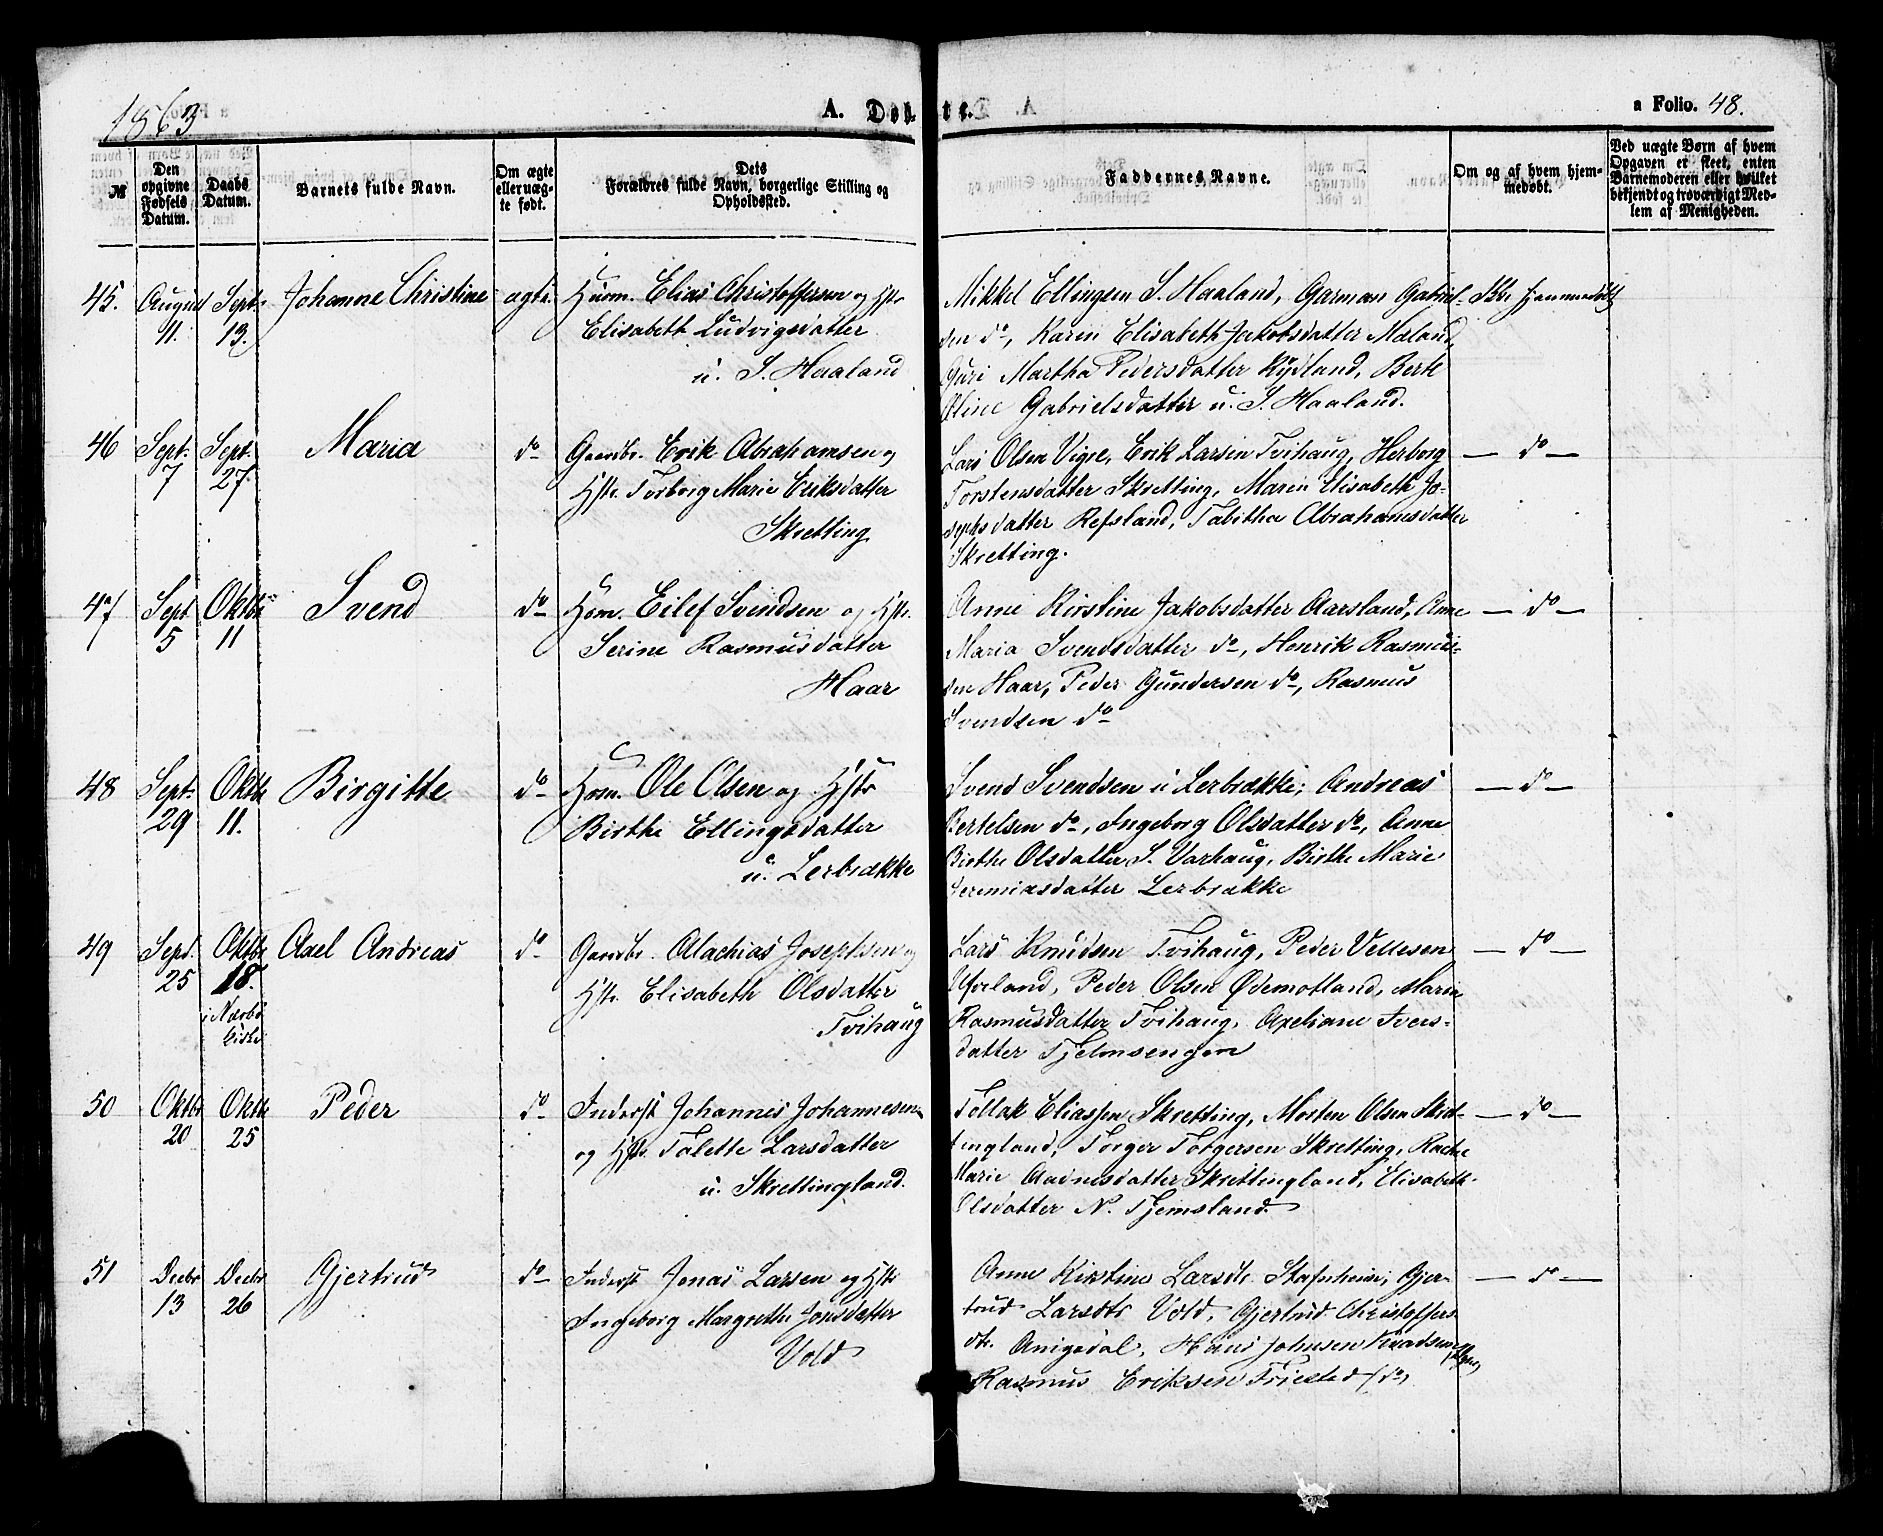 1863
A. Døbte.
a Folio. 48.
№
Den opgivne Fødsels Datum.
Daabs Datum.
Barnets fulde Navn.
Om ægte eller uægte født.
Dets Forældres fulde Navn, borgerlige Stilling og Opholdssted.
Faddernes Navne.
Om og af hvem hjemmedøbt.
Ved uægte Børn af hvem Opgaven er skeet, enten Barnemoderen eller hvilket bekjendt og troværdigt Medlem af Menigheden.
45. August 11. Sept. 13. Johanne Christine ægte.
Huusm. Elias Christoffersen og Hstr
Elisabeth Ludvigsdatter
u. S. Haaland
Mikkel Ellingsen S. Haaland, Garman Gabriel-
sen do, Karen Elisabeth Jakobsdatter Mæland,
Guri Martha Pedersdatter Rydland, Berte
Oline Gabrielsdatter u. S. Haaland.
Ikke hjemmedøbt
46 Sept. 7 Sept. 27. Maria do
Gaardbr. Erik Abrahamsen og
Hstr. Torborg Marie Eriksdatter
Skretting
Lars Olsen Vigre, Erik Larsen Tvihaug, Herborg
Torstensdatter Skretting, Maren Elisabeth Jo-
sephsdatter Refsland, Tabitha Abrahamsdatter
Skretting.
— do —
47 Sept 5 Oktbr 11 Svend do
Hsm. Eilef Svendsen og Hstr.
Serine Rasmusdatter
Haar
Anne Kirstine Jakobsdatter Aarsland, Anne
Maria Svendsdatter do, Henrik Rasmus-
sen Haar, Peder Gundersen do, Rasmus
Svendsen do
— do —
48 Sept. 29 Oktb 11. Birgitte do
Hsm. Ole Olsen og Hstr
Birthe Ellingsdatter
u. Lerbrække
Svend Svendsen u Lerbrække, Andreas
Bertelsen do, Ingeborg Olsdatter do, Anne
Birthe Olsdatter S. Varhaug, Birthe Marie
Jeremiasdatter Lerbrække
— do —
49 Sept. 25 Oktbr 18. i Nærbø Kirke Axel Andreas do
Gaardbr. Malachias Josephsen og
Hstr. Elisabeth Olsdatter
Tvihaug
Lars Knudsen Tvihaug, Peder Vellesen
Ueland, Peder Olsen Ødemotland, Maria
Rasmusdatter Tvihaug, Axeliane Ivers-
datter
— do —
50 Oktbr 20 Oktb 25 Peder do
Inderst Johannes Johannesen
og Hstr Tolette Larsdatter
u. Skrettingland.
Tollak Eliassen Skretting, Morten Olsen Skret-
tingland, Torger Torgersen Skretting, Rachel
Marie Aadnesdatter Skrettingland, Elisabeth
Olsdatter N. Tjemsland
— do —
51 Decbr 13 Decbr 26 Gjertrud do
Inderst Jonas Larsen og Hstr
Ingeborg Margrethe Jonsdatter
Vold
Anne Kirstine Larsdtr. Stafnheim, Gjer-
trud Larsdtr Vold, Gjertrud Christoffers
dtr. Anigsdal, Hans Johnsen
Rasmus Eriksen (do)
— do —